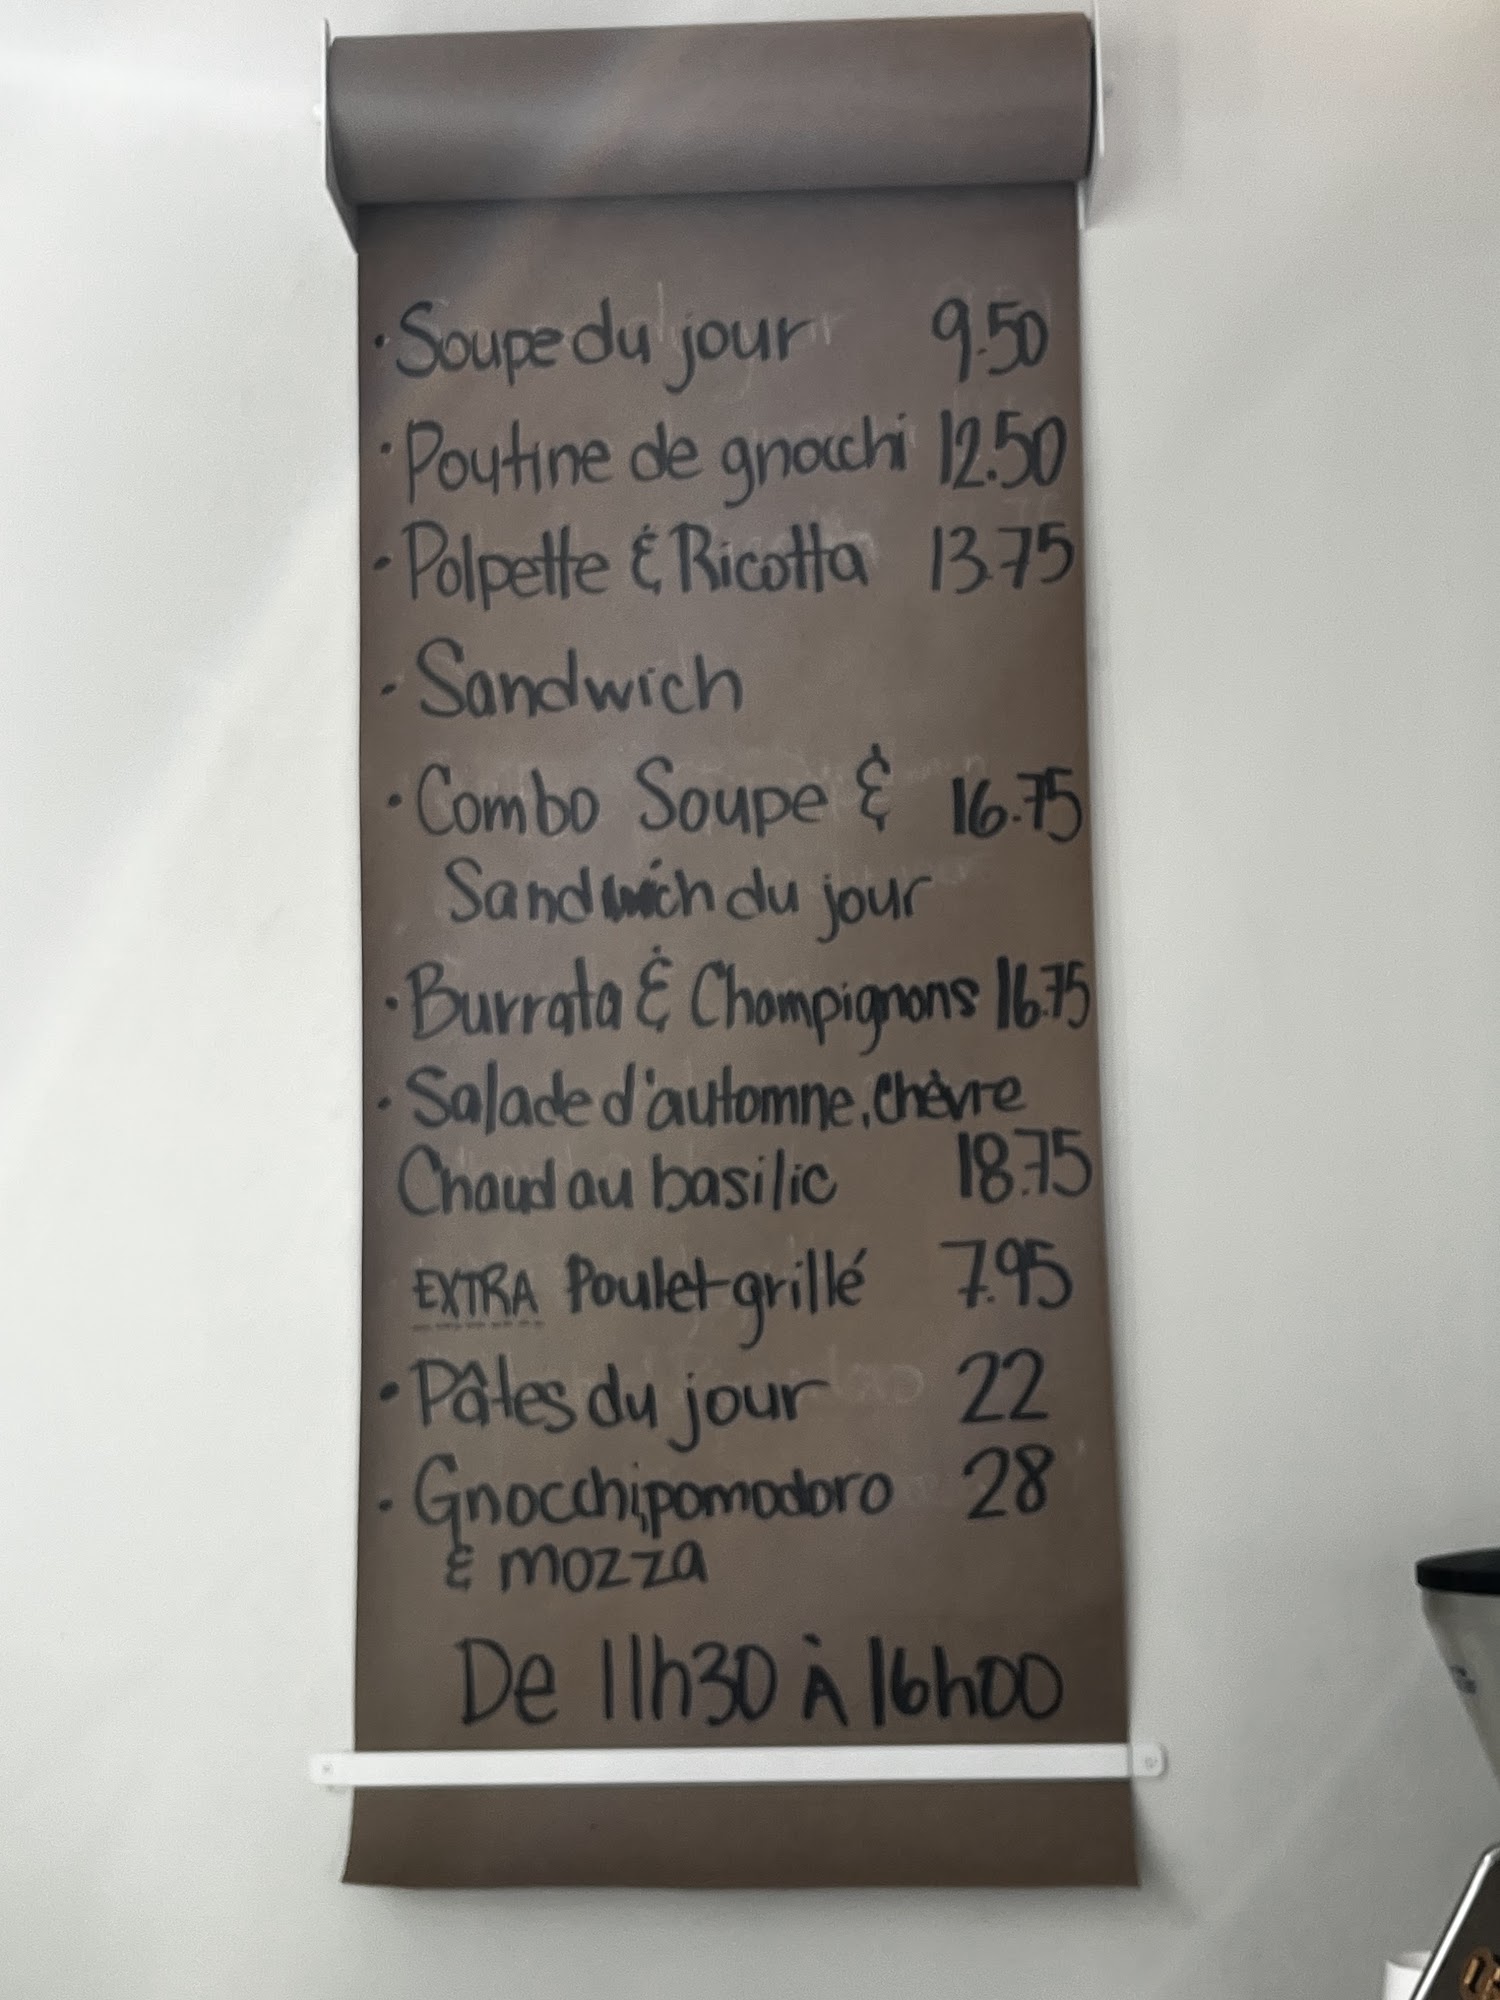 · Soupe du jour 9.50
· Poutine de gnocchi 12.50
· Polpette & Ricotta 13.75
· Sandwich
· Combo Soupe & 16.75
Sandwich du jour
· Burrata & Champignons 16.75
· Salade d'automne, chèvre
Chaud au basilic 18.75
EXTRA Poulet grillé 7.95
· Pâtes du jour 22
· Gnocchi, pomodoro 28
& mozza
De 11h30 À 16h00